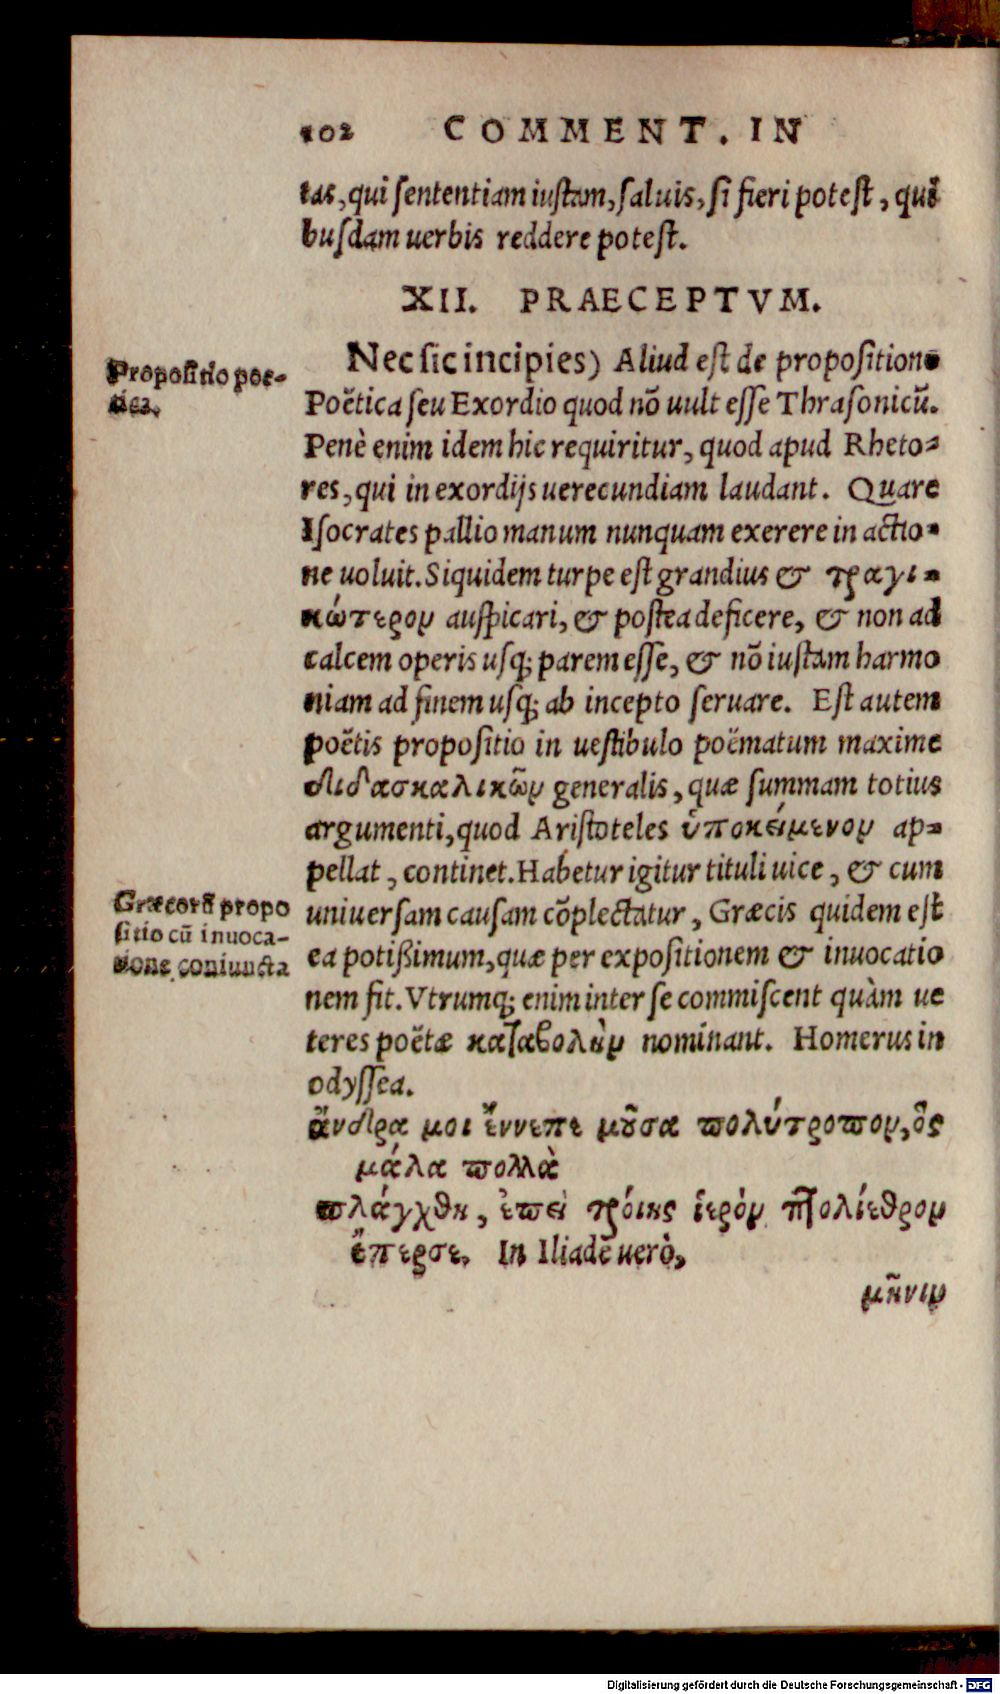 102 COMMENT. IN
tas, qui sententiam iustam, saluis, si fieri potest, qui
busdam uerbis reddere potest.
XII. PRAECEPTVM.
Propositio poë-
tica.
Nec sic incipies) Aliud est de propositione
Poëtica seu Exordio quod nõ uult esse Thrasonicũ.
Penè enim idem hic requiritur, quod apud Rheto-
res, qui in exordijs uerecundiam laudant. Quare
Isocrates pallio manum nunquam exerere in actio-
ne uoluit. Siquidem turpe est grandius & τραγι-
κώτερον auspicari, & postea deficere, & non ad
calcem operis usq; parem esse, & nõ iustam harmo
niam ad finem usq; ab incepto seruare. Est autem
poëtis propositio in uestibulo poëmatum maxime
διδασκαλικῶν generalis, quæ summam totius
argumenti, quod Aristoteles ὑποκείμενον ap-
pellat, continet. Habetur igitur tituli uice, & cum
Græcorũ propo
sitio cũ inuoca-
tione coniuncta
uniuersam causam cõplectatur, Græcis quidem est
ea potißimum, quæ per expositionem & inuocatio
nem fit. Vtrumq; enim inter se commiscent quàm ue
teres poëtæ καταβολὴν nominant. Homerus in
odyssea.
ἄνδρα μοι ἔννεπε μοῦσα πολύτροπον, ὃς
μάλα πολλὰ
πλάγχθη, ἐπεὶ τροίης ἱερὸν πτολίεθρον
ἔπερσε. In Iliade uerò,
μῆνιν
Digitalisierung gefördert durch die Deutsche Forschungsgemeinschaft - DFG